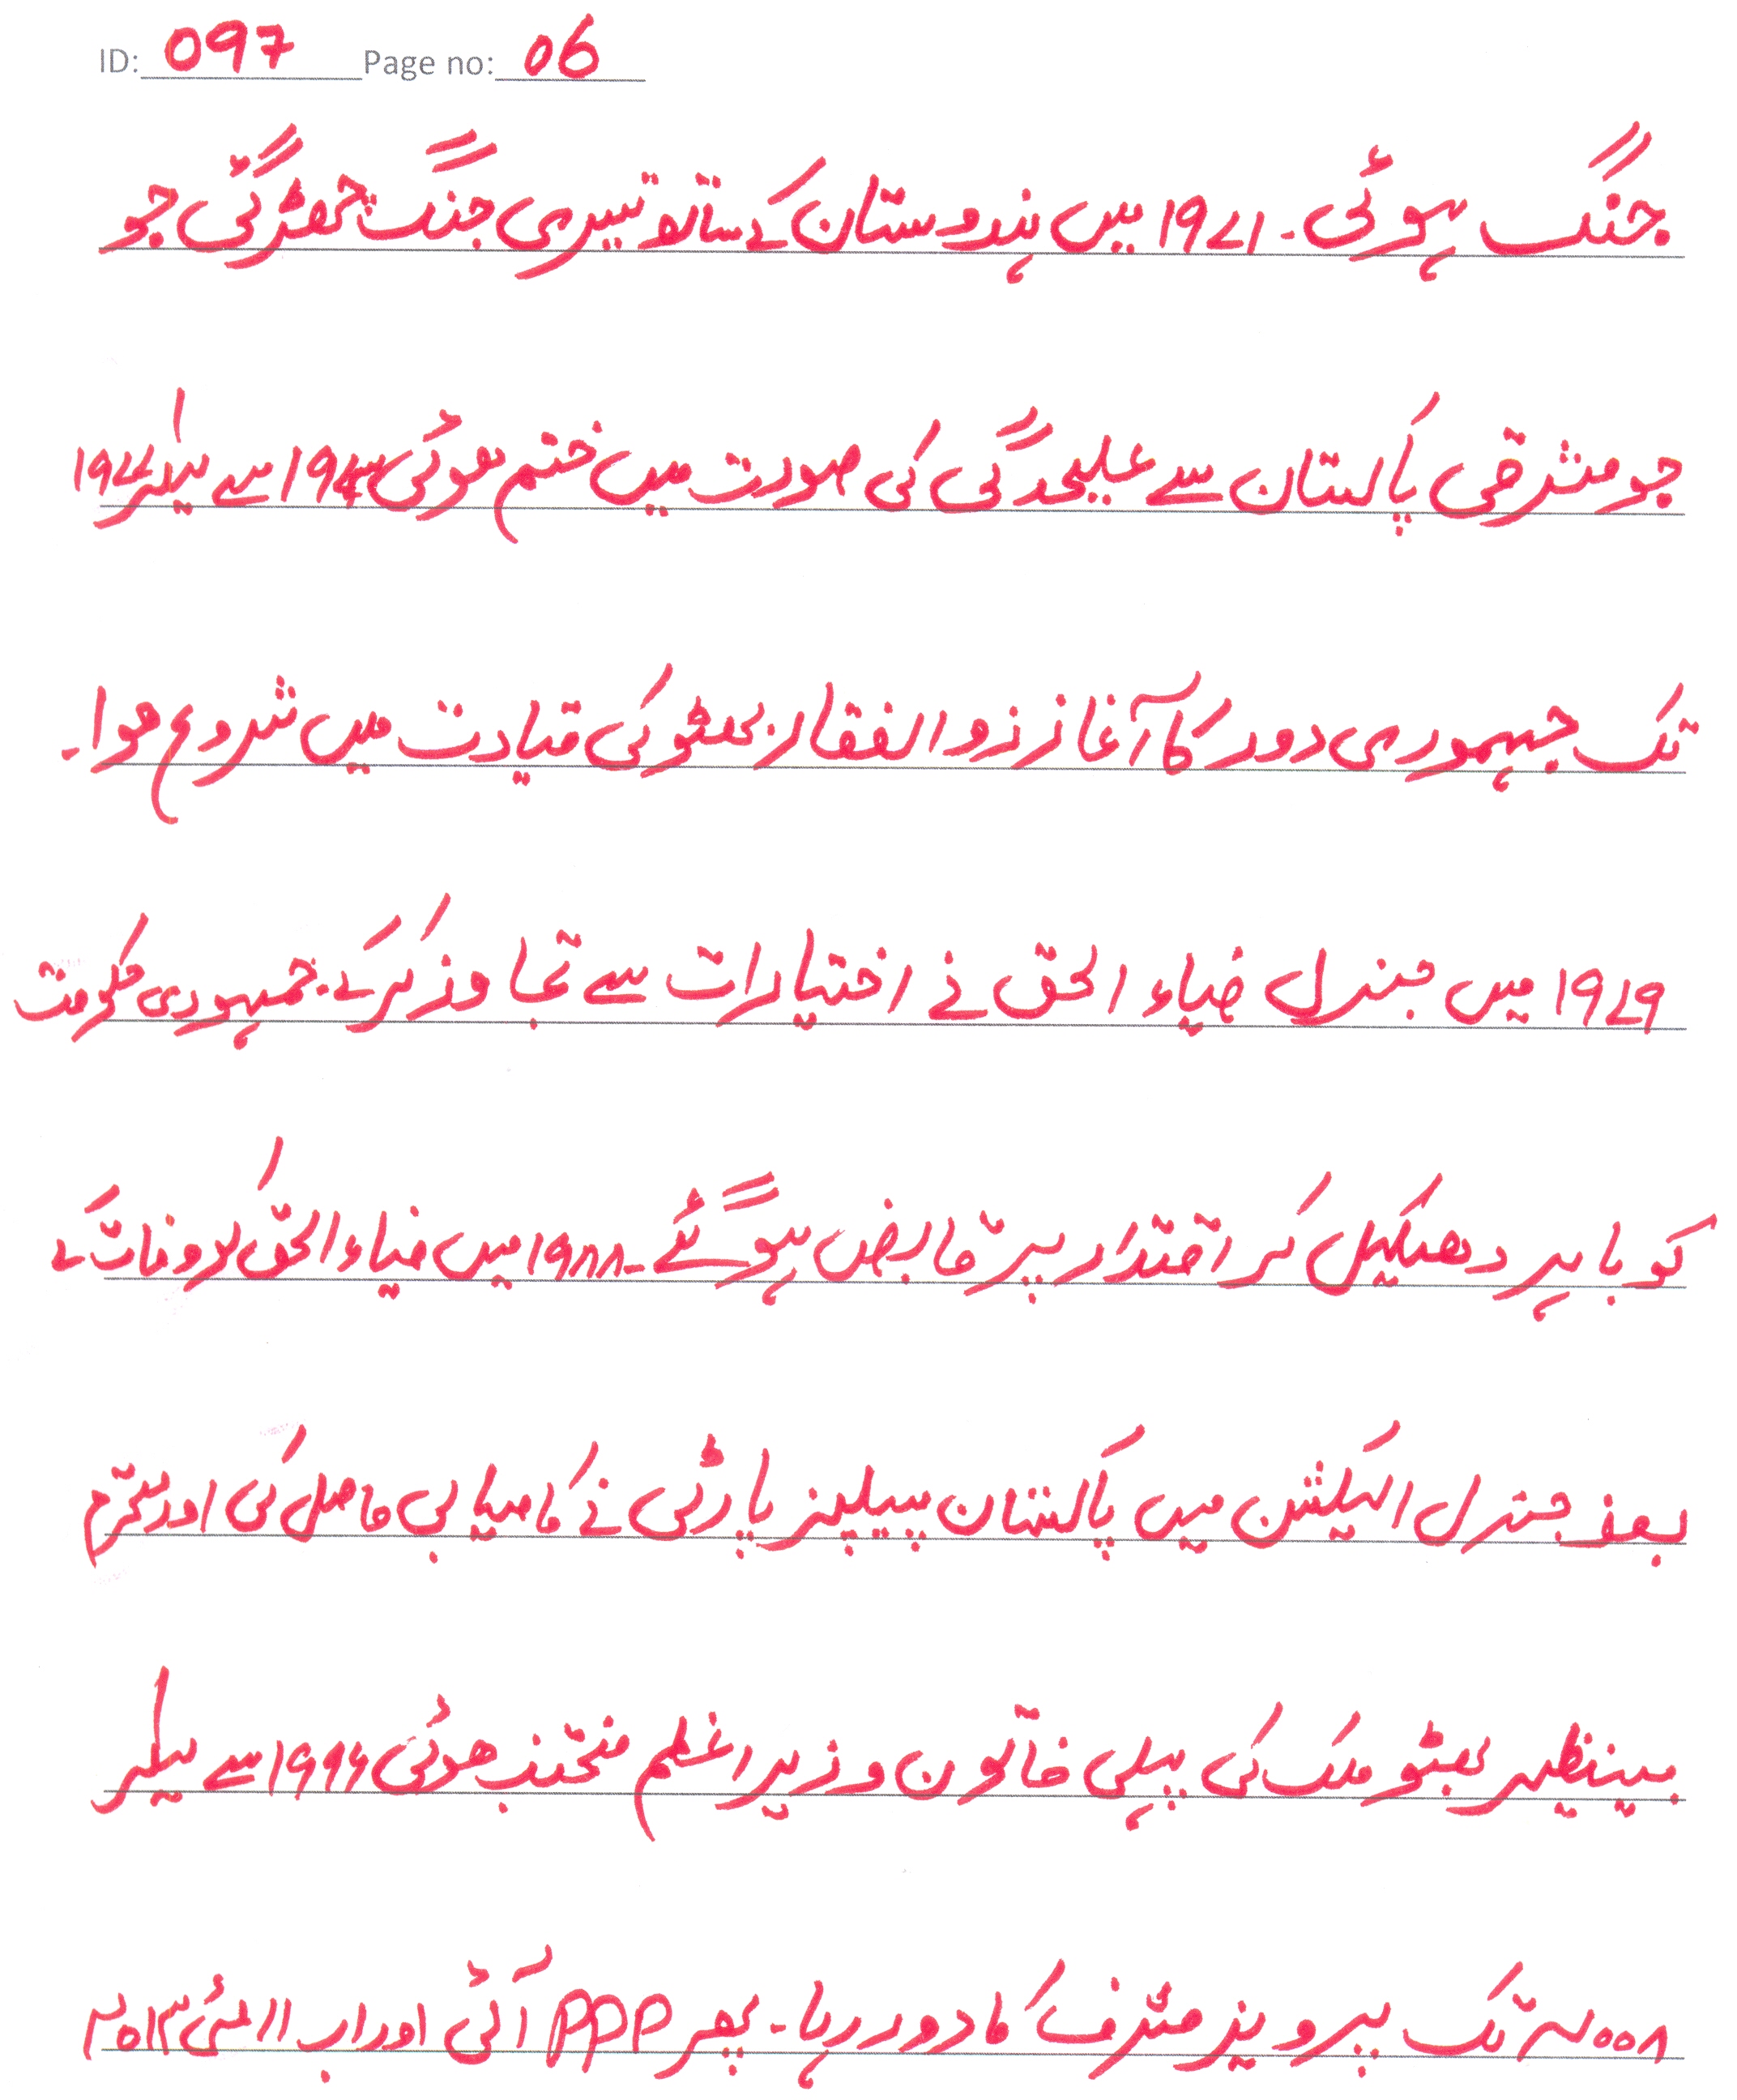 ID: 097 Page no: 06
جنگ ہوئی۔ ۱۹۷۱ میں ہندوستان کے ساتھ تیسری جنگ چھڑ گئی جو
جو مشرقی پاکستان سے علیحدگی کی صورت میں ختم ہوئی سے لیکر ۱۹۷۷
تک جمہوری دور کا آغاز زوالفقار بھٹو کی قیادت میں شروع ہوا۔
۱۹۷۹ میں جنرل ضیاء الحق نے اختیارات سے تجاوز کر کے جمہوری حکومت
کو باہر دھکیل کر اقتدار پر قابض ہو گئے۔ ۱۹۸۸ میں ضیاء الحق کو وفات کے
بعد جنرل الیکشن میں پاکستان پیپلیز پارٹی نے کامیابی حاصل کی اور محترم
بینظیر بھٹو ملک کی پہلی خاتون وزیر اعظم منتخب ہوئی ۱۹۹۹ سے لیکر
۲۰۰۸ تک پرویز مشرف کا دور رہا۔ پھر PPP آئی اور اب ۱۱ مئی ۲۰۱۳